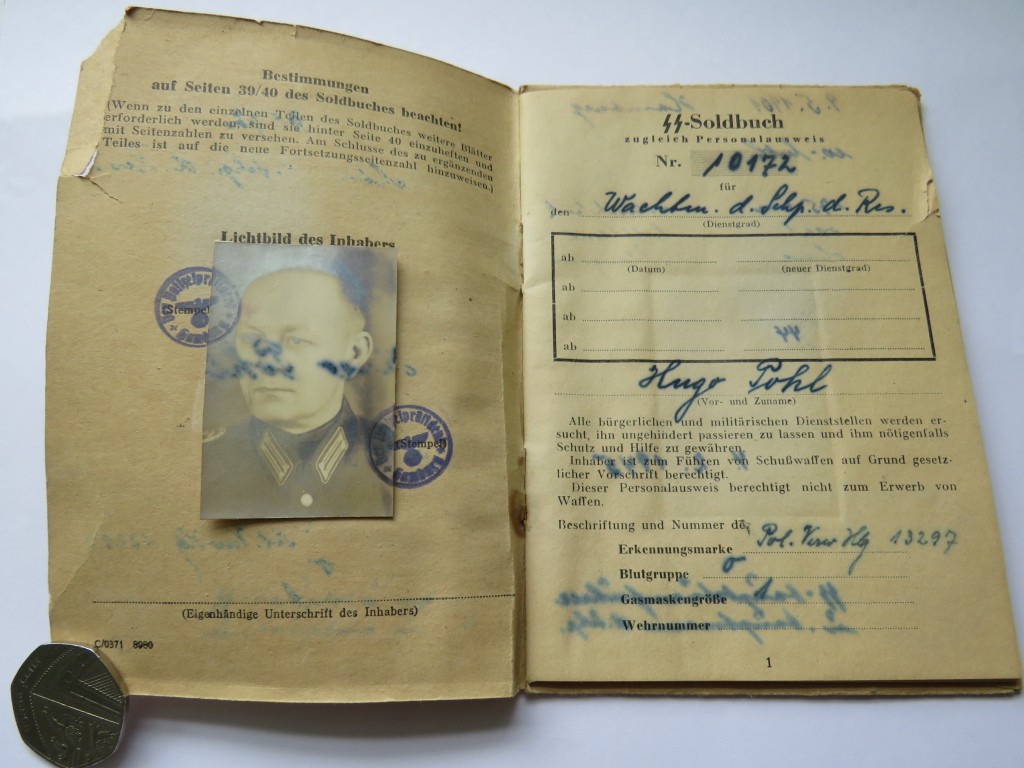 Bestimmungen
auf Seiten 39/40 des Soldbuches beachten!
(Wenn zu den einzelnen Teilen des Soldbuches weitere Blätter
erforderlich werden, sind sie hinter Seite 40 einzuheften und
mit Seitenzahlen zu versehen. Am Schlusse des zu ergänzenden
Teiles ist auf die neue Fortsetzungsseitenzahl hinzuweisen.)
Lichtbild des Inhabers
Der Polizeipräsident
(Stempel)
Hamburg
Polizeipräsident
(Stempel)
Hamburg
(Eigenhändige Unterschrift des Inhabers)
C/0371 8980
SS-Soldbuch
zugleich Personalausweis
Nr. 10172
für
den Wachtm. d. Schp. d. Res.
(Dienstgrad)
ab
(Datum) (neuer Dienstgrad)
ab
ab
ab
Hugo Pohl
(Vor- und Zuname)
Alle bürgerlichen und militärischen Dienststellen werden er-
sucht, ihn ungehindert passieren zu lassen und ihm nötigenfalls
Schutz und Hilfe zu gewähren.
Inhaber ist zum Führen von Schußwaffen auf Grund gesetz-
licher Vorschrift berechtigt.
Dieser Personalausweis berechtigt nicht zum Erwerb von
Waffen.
Beschriftung und Nummer der
Erkennungsmarke Pol. Verw Hbg 13297
Blutgruppe o
Gasmaskengröße 1
Wehrnummer
1